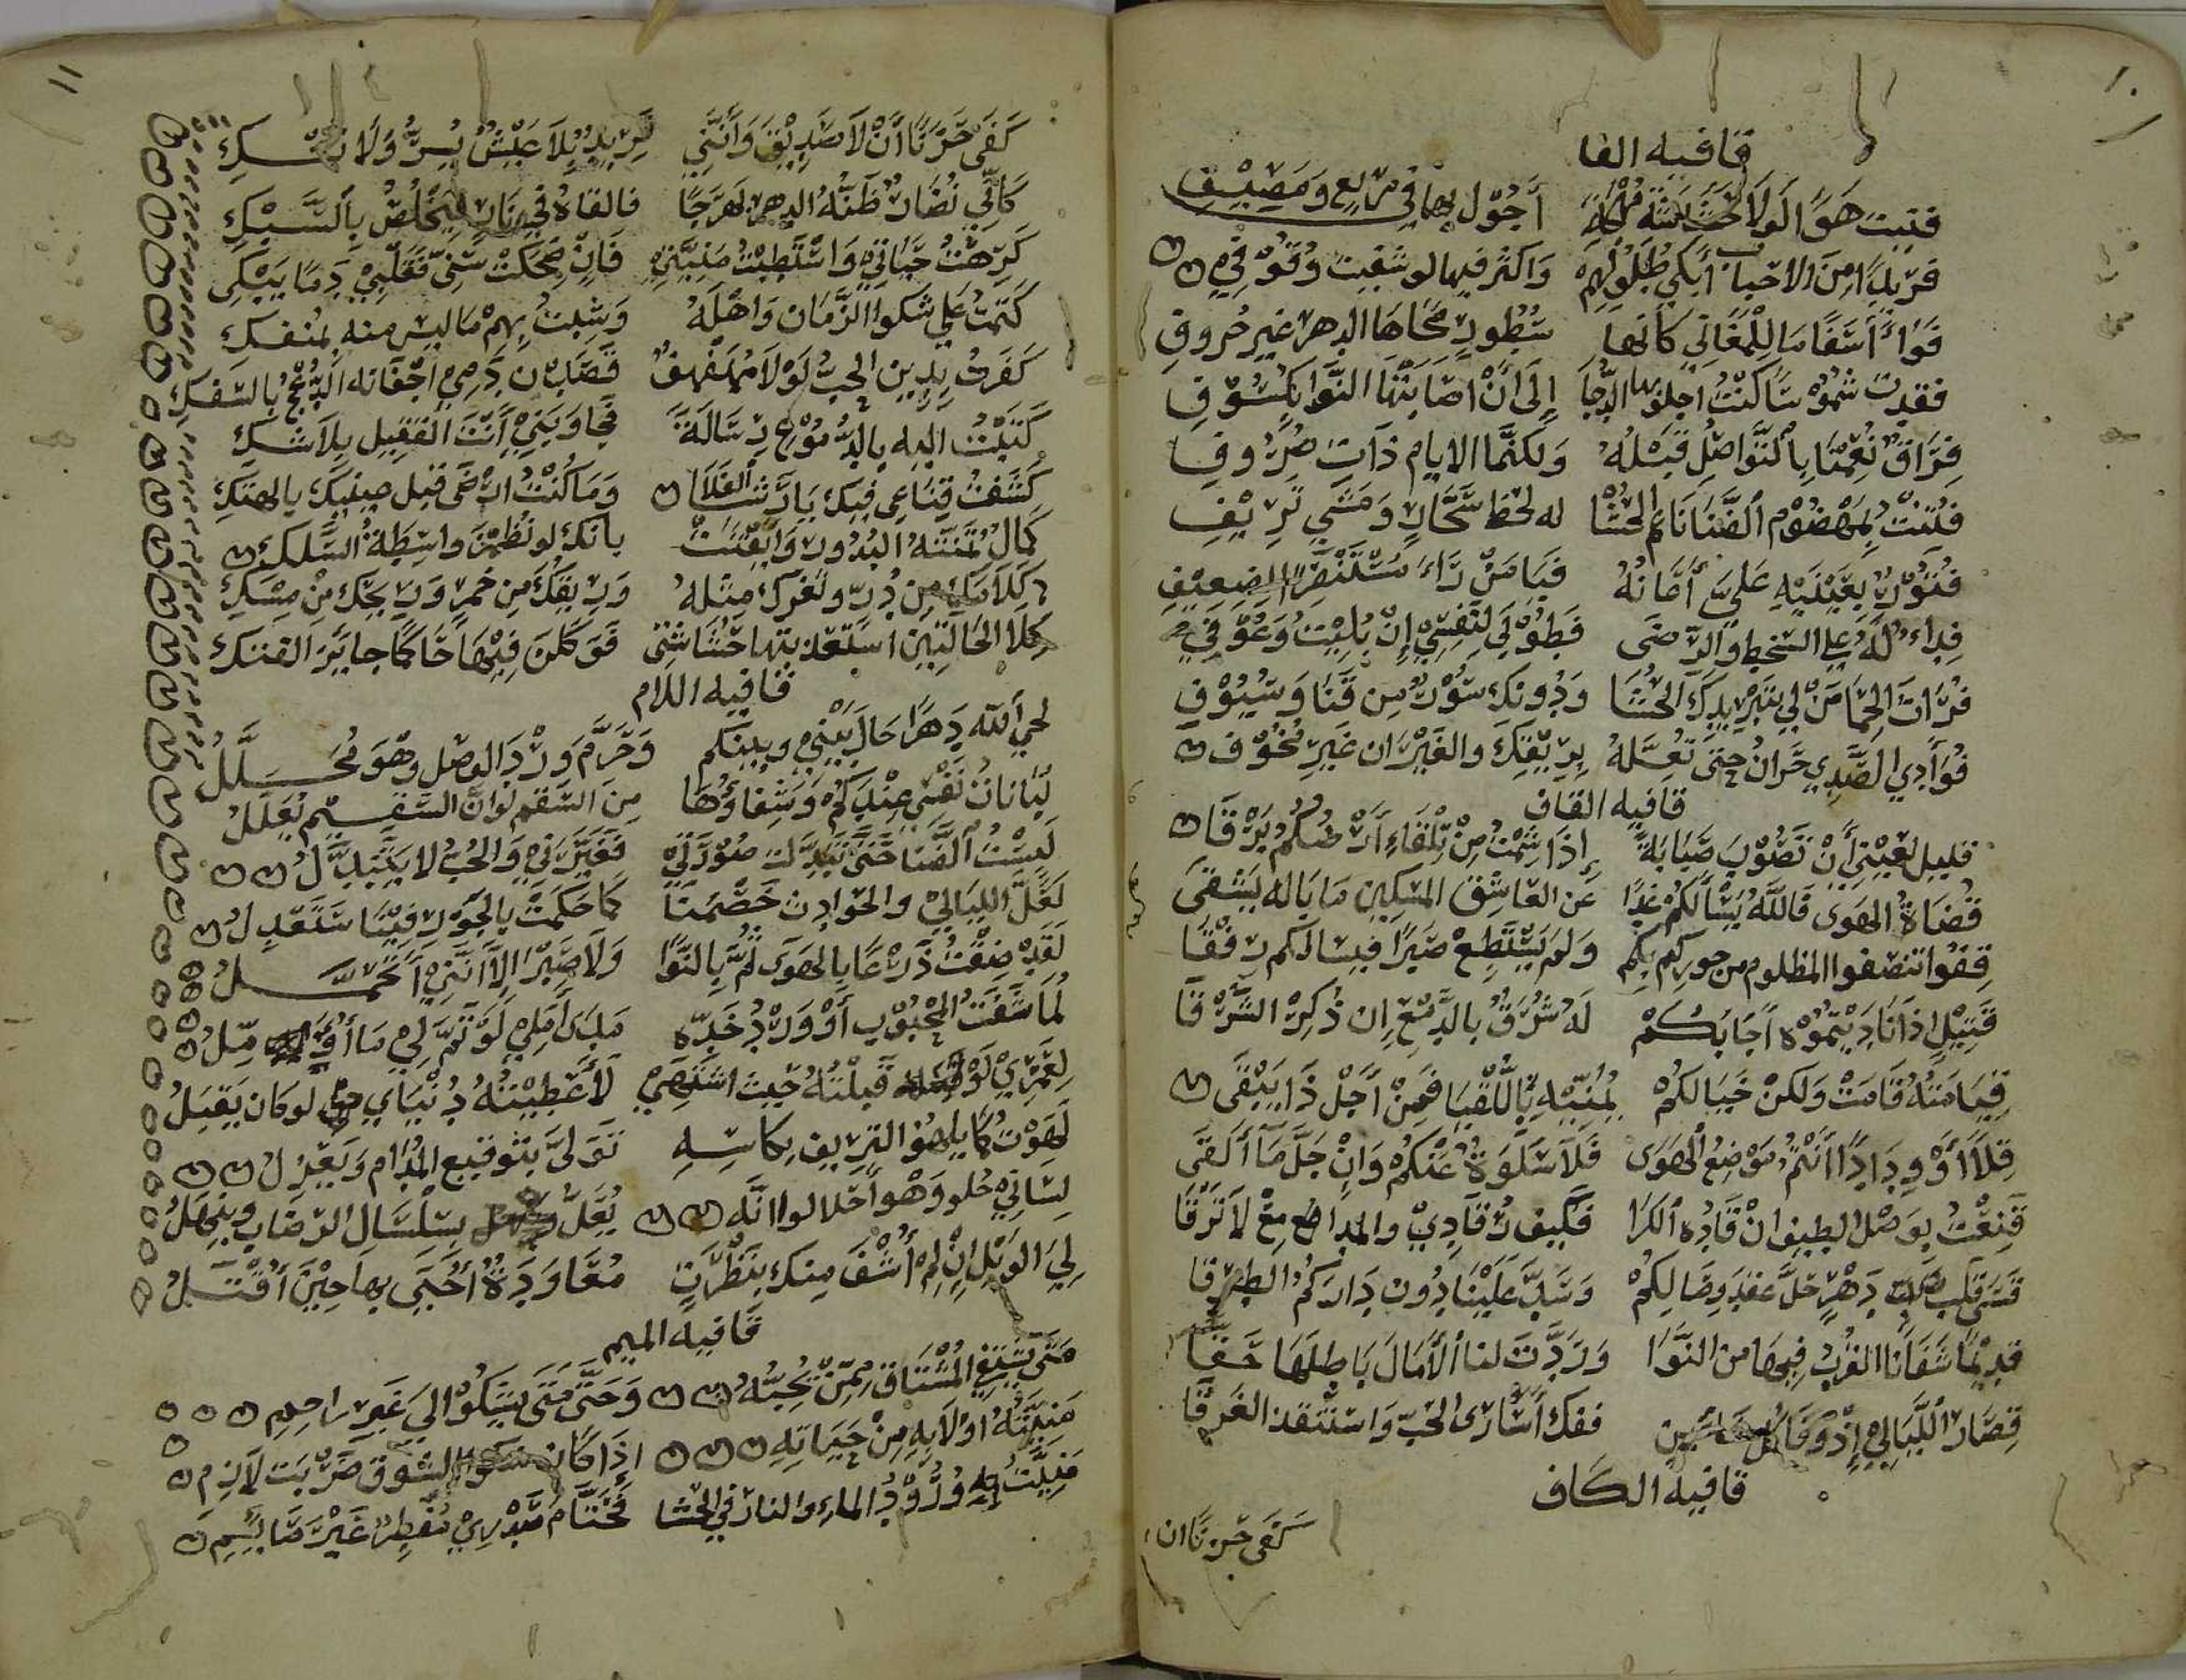 ١٠
قافيه الفا
فتيت هوًا لولا أجول بها في مربع ومصيف
فريدًا من الاحباب أبكي طلولهم واكثر فيها لو شفيت وقوفي
فوا أسفًا ما للمغاني كأنها سطور محاها الدهر غير حروف
فقدت شموسًا كنت اجلو بها الدجا إلى ان اصابتها النوا بكسوف
فراق نعمنا بالتواصل قبله ولكنما الايام ذات صروف
فتنت بمهضوم الحشا له لحظ سحار ومشي نزيف
فتور بعينيه علي أمانه فيا من رأى مستنصرًا لضعيف
فداء له على السخط والرضى فطوبى لنفسي إن بليت وعوفي
فرات الحما من لي ببرد الحشا ودونك سور من قنا وسيوف
فؤادي الصدي حران حتى تعله بريقك والغيران غير مخوف
قافيه القاف
قليل لعيني أن تصوب صبابة إذا شمت من تلقاء أرضكم برقا
قضاة الهوى فالله يسألكم غدًا عن العاشق المسكين ما باله يشقى
قفوا تنصفوا المظلوم من جوركم بكم ولم يستطع صبرًا فيسالكم رفقا
قتيل إذا ناديتموه أجابكم له شرق بالدمع ان ذكر الشرقا
قيامته قامت ولكن خيالكم يمنيه باللقيا فمن أجل ذا يبقى
قلا أو ودادًا أنتم موضع الهوى فلا سلوة عنكم وان جل ما ألقى
قنعت بوصل الطيف ان قاده الكرا فكيف رقادي والمدامع لا ترقا
قسى قلب دهر حل عقد وصالكم وسد علينا دون داركم الطرقا
قديمًا شفانا القرب فيها من النوا وردت لنا الآمال باطلها حقا
قصار الليالي إذ ففك أسارى الحب واستنقذ الغرقا
قافيه الكاف
كفى حزنًا ان
١١
كفى حزنًا أن لا صديق وأنني فريد بلا عيش يسر ولا نسك
كأني نضار ظنه الدهر بهرجًا فالقاه في نار ليخلص بالسبك
كرهت حياتي واستطبت منيتي فإن ضحكت سني فقلبي دمًا يبكي
كتمت على شكوا الزمان واهله وشبت بهم ما ليس منه بمنفك
كفرت بدين الحب لولا مهفهف قضت دمي أجفانه الدعج بالسفك
كتبت اليه بالدموع رسالة فجاوبني أنت القتيل بلا شك
كشفت قناعي فيك يا رشا الفلا وما كنت ارضى قبل صفيك بالهتك
كمال تمنته البدور وأيقنت بانك لو نظمن واسطة السلك
كلامك من در وثغرك مثله وريقك من خمر وريحك من مسك
كلا الحالتين استعذبتها حشاشتي فوكلن فيها حاكمًا جايز الفتك
قافيه اللام
لحي الله دهرًا حال بيني وبينكم وحرم ورد الوصل وهو محلل
لبانات نفسي عندكم وشفاؤها من السقم لو ان السقيم يعلل
لبست الضنا حتى تبدلت صورتي فغيرني والحب لا يتبدل
لعل الليالي والحوادث خصمنا كما حكمت بالجور فينا ستعدل
لقد ضقت ذرعًا بالهوى ثم بالنوا ولا صبر الا أنني أتحمل
لما شفت المحبوب أو ورد خده مدى أملي لو تم لي ما أؤمل
لعمري لو قبلته حيث اشتهي لأعطيته دنياي لو كان يقبل
لهوت كما يلهو النزيف بكاسه تولى بتوقيع المدام ويعزل
لساني حلو وهو احلا لو انه يعل بسلسال الرضاب وينهل
لي الويل إن لم أشف منك بنظرة معاودة أحيى بها حين أقتل
قافيه الميم
متى يشتفي المشتاق ممن يحبه وحتى متى يشكوا الى غير راحم
منيته اولا به من حياته اذا كان شكوا الشوق ضربت لازم
منيت ورود الماء والنار في الحشا فحتام صدري مفطر غير صايم